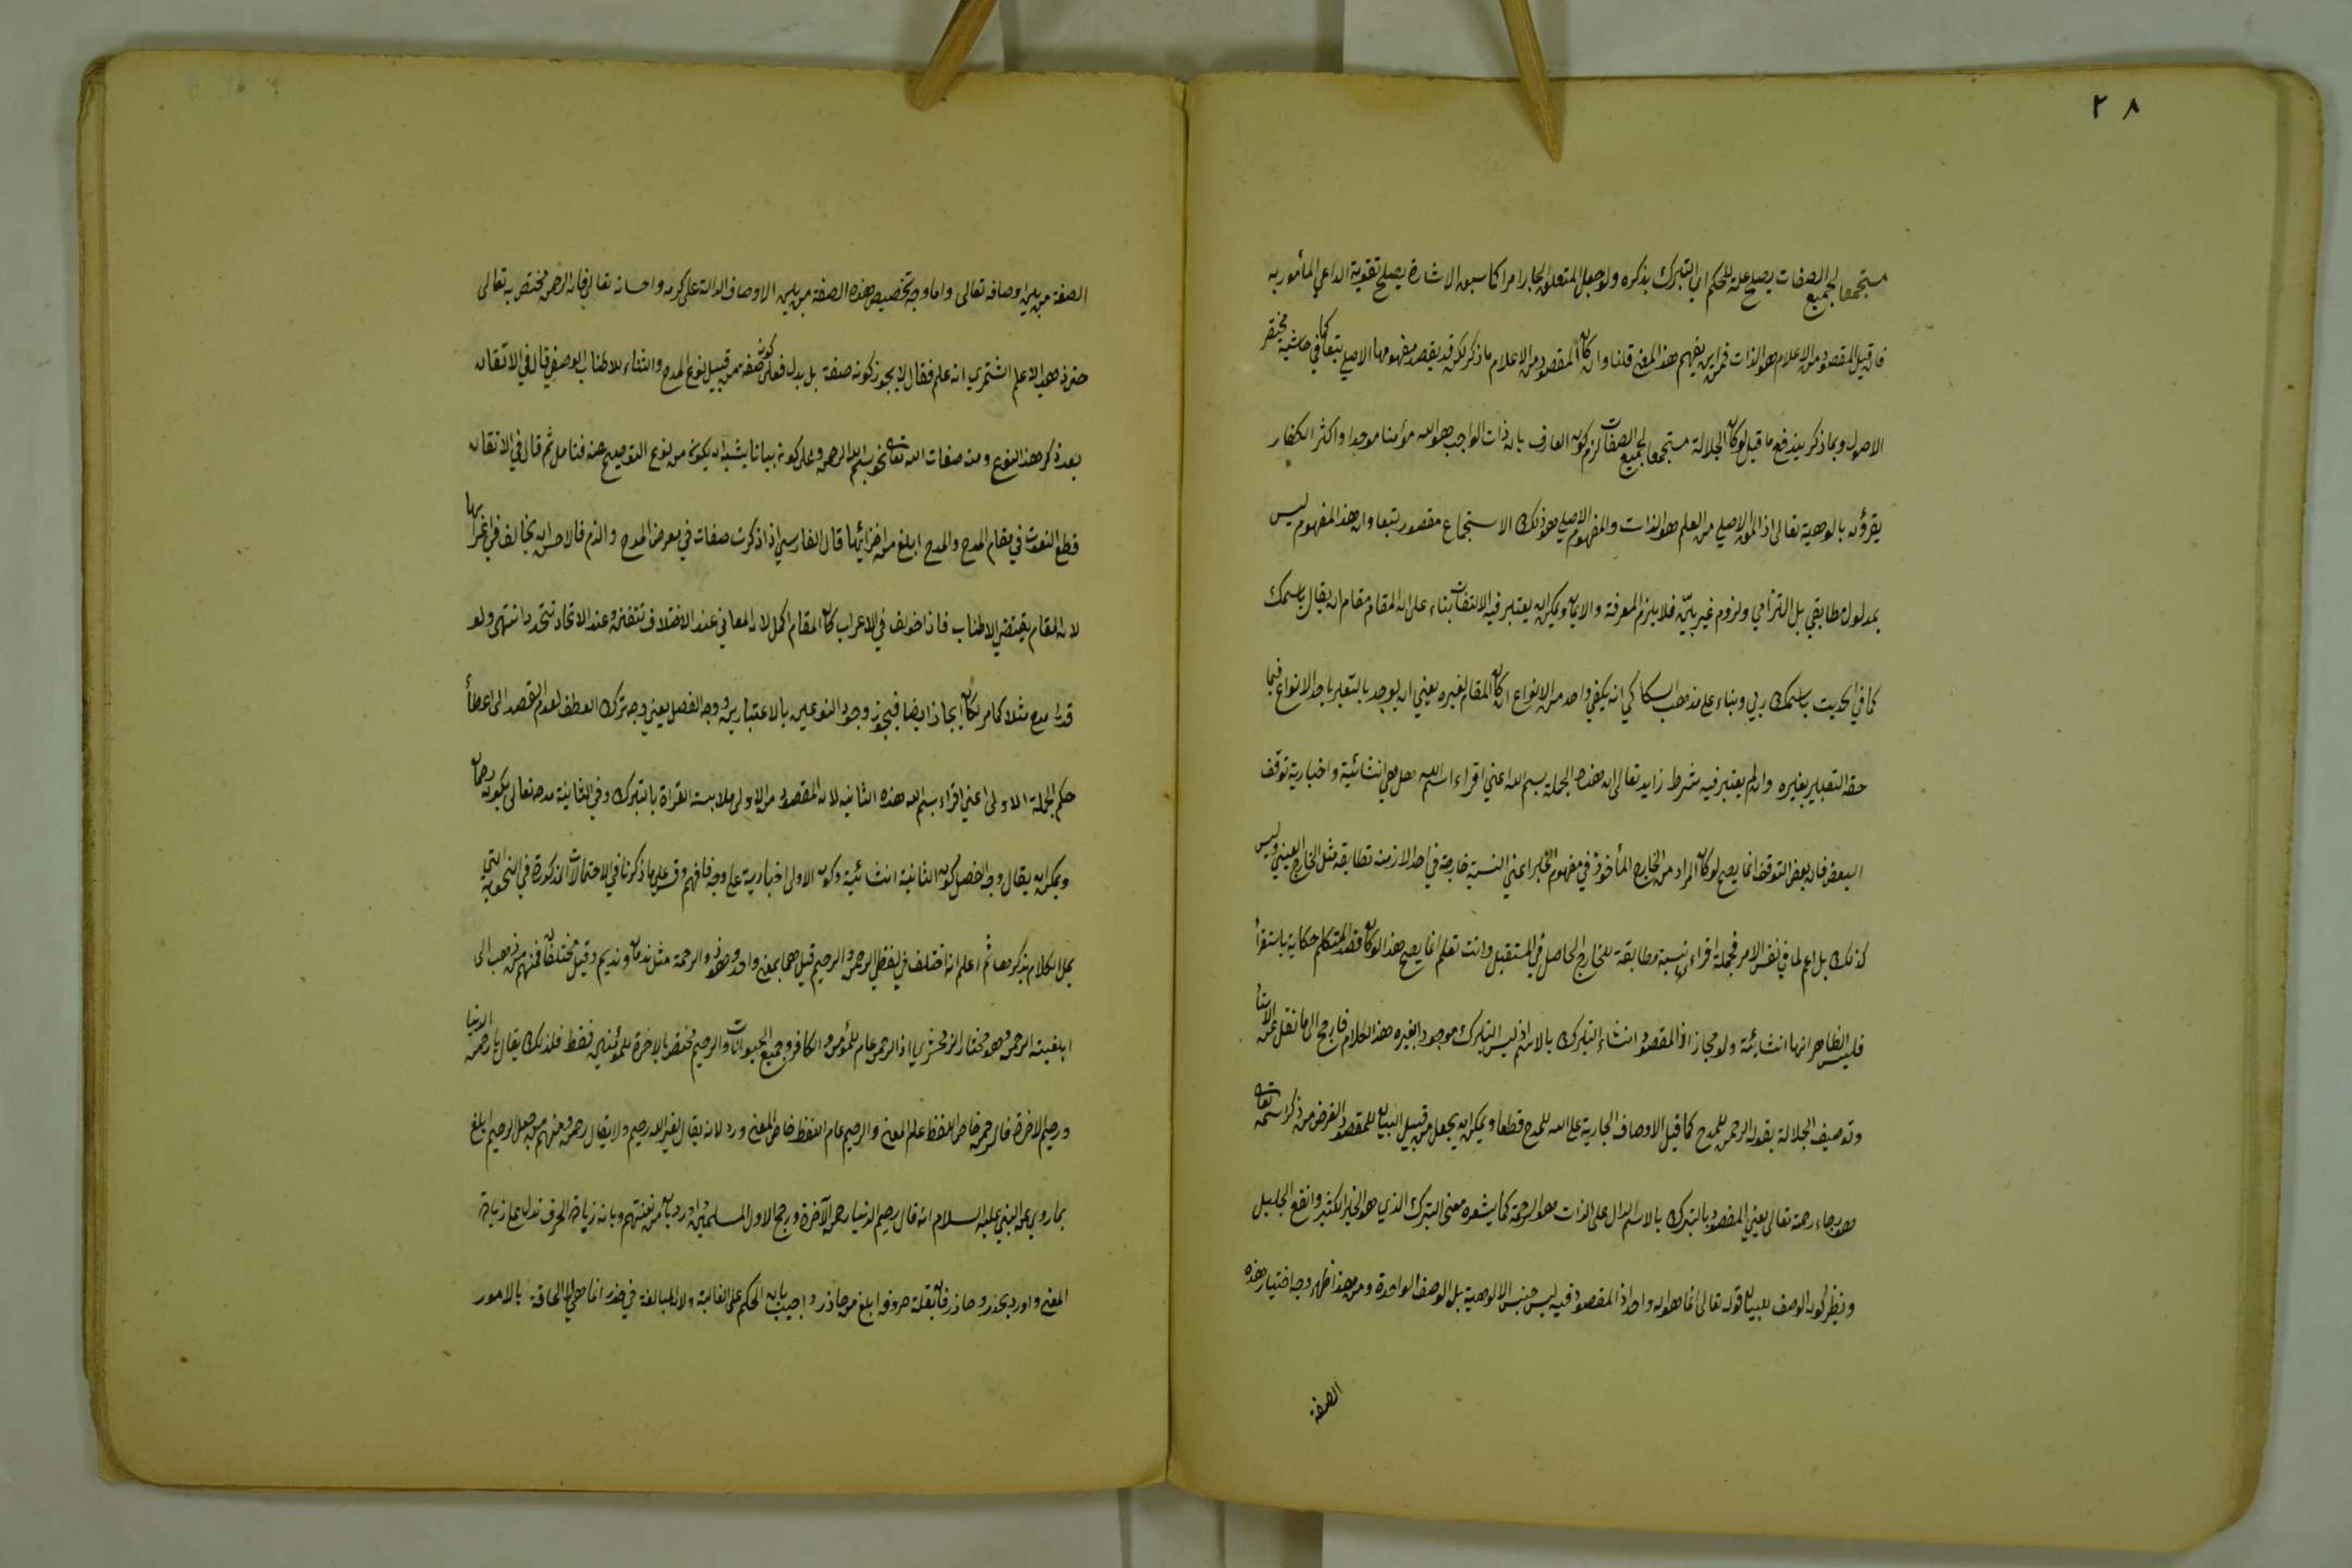 ٢٨
مستجمعا لجميع الصفات يصلح علة للحكم اي التبرك بذكره ولو جعل المتعلق الجار امرا كما سبق الاشارة يصلح تقوية الداعي المأمور به
فان قيل المقصود من الاعلام هو الذات فمن اين يفهم هذا المعنى قلنا وان كان المقصود من الاعلام ما ذكر لكن قد يقصد مفهومها الاصلي تبعا كما في حاشية مختصر
الاصول وبما ذكر يندفع ما قيل لو كان الجلالة مستجمعا لجميع الصفات لزم كون العارف بان ذات الواجب هو الله مؤمنا موحدا واكثر الكفار
يقرؤن بالوهية تعالى اذ المعنى الاصلي من العلم هو الذات والمفهوم الاصلي هو ذلك الاستجماع مقصور تبعا وان هذا المفهوم ليس
بمدلول مطابقي بل التزامي ولزوم غير بيّن فلا يلزم المعرفة والايمان ويمكن ان يعتبر فيه الالتفات بناء على ان المقام مقام ان يقال باسمك
كما في الحديث باسمك ربي وبناء على مذهب السكاكي انه يكفي واحد من الانواع ان كان المقام لغيره يعني ان يوجد بالتعبير باحد الانواع فيما
حقه التعبير بغيره وان لم يعتبر فيه شرط زايد تعالى ان هذه الجملة بسم الله اعني اقراء اسم الله هل هي انشائية واخبارية توقف
البعض فان بعض التوقف انما يصح لو كان المراد من الخارج المأخوذ في مفهوم الخبر اعني النسبة خارجة في احد الازمنة تطابقه مثل الخارج العيني وليس
كذلك بل اعم لما في نفس الامر فجملة اقراء نسبة مطابقة للخارج الحاصل في المستقبل وانت تعلم انما يصح هذا لو كان قصد المتكلم حكاية باستقرأ
فليس الظاهر انها انشائية ولو مجازا اذ المقصود انشاء التبرك بالاسم اذ ليس التبرك موجودا بغيره هذا الكلام فارجح الى ما نقل عن
وتوصيف الجلالة بقوله الرحمن للمدح كما قيل الاوصاف الجارية على الله للمدح قطعا ويمكن ان يجعل من قبيل البيان للمقصود الغرض من ذكر اسمه تعالى
هو رجاء رحمة تعالى يعني المقصود بالتبرك بالاسم الدال على الذات هو الرحمة كما يشعره معنى التبرك الذي هو الخير الكثير والنفع الجليل
ونظير كون الوصف للبيان قوله تعالى انما هو اله واحد اذ المقصود فيه ليس جنس الالوهية بل الوصف الواحدة ومن هذا ظهر وجه اختيار هذه
الصفة
الصفة من بين اوصافه تعالى واما وجه تخصيص هذه الصفة من بين الاوصاف الدالة على كرمه واحسانه تعالى فان الرحمن مختص به تعالى
حتى ذهب الاعلم الشنتمري انه علم فقال لا يجوز كونه صفة بل بدل فعلى كونه صفة من قبيل نوع المدح والثناء للاطناب الوصفي قال في الاتقان
بعد ذكر هذا النوع ومنه صفات الله تعالى نحو بسم الله الرحمن وعلى كونه بيانا يشبه ان يكون من نوع التوضيح عنه فتامل ثم قال في الاتقان
قطع النعوت في مقام المدح والمدح ابلغ من اجرائها قال الفارسي اذا ذكرت صفات في معرض المدح والذم فالاحسن ان يخالف في اعرابها
لان المقام يقتضي الاطناب فاذا خولف في الاعراب كان المقام اكمل لان المعاني عند الاختلاف تتفنن وعند الاتحاد تتحد انتهى ولو
قدر امدح مثلا كما مر لكان ايجازا ايضا فيجوز وجود النوعين بالاعتبارين ووجه الفصل يعني وجه ترك العطف لعدم القصد الى اعطأ
حكم الجملة الاولى اعني اقراء بسم الله هذه الثانية لان المقصود من الاولى ملابسة القراة بالتبرك وفي الثانية مدحه تعالى بكونه رحمان
ويمكن ان يقال وجه الفصل كون الثانية انشائية وكون الاولى اخبارية على وجه فافهم وقس على ما ذكرنا في الاحتمالات المذكورة في النحوية التي
بملا الكلام بذكرها ثم اعلم انه اختلف في لفظي الرحمن والرحيم قيل هما بمعنى واحد وهو ذو الرحمة مثل ندمان ونديم وقيل مختلفان فمنهم من ذهب الى
ابلغيته الرحمن وهو مختار الزمخشري اذ الرحمن عام للمؤمن والكافر وجميع الحيوانات والرحيم مختص بالاخرة للمؤمنين فقط فلذلك يقال يا رحمن الدنيا
ورحيم الاخرة فالرحمن خاص اللفظ عام المعنى والرحيم عام اللفظ خاص المعنى ورد لانه يقال لغير الله رحيم ولا يقال رحمن ومنهم من جعل الرحيم ابلغ
بما روي عن النبي عليه السلام انه قال رحيم الدنيا رحمن الآخرة ورجح الاول وبان زيادة الحرف تدل على زيادة
المعنى واورد بحذر وحاذر فان بقلة حروفه ابلغ من حاذر واجيب بان الحكم على الغالبة ولان المبالغة في حذر انما هي لالحاقه بالامور